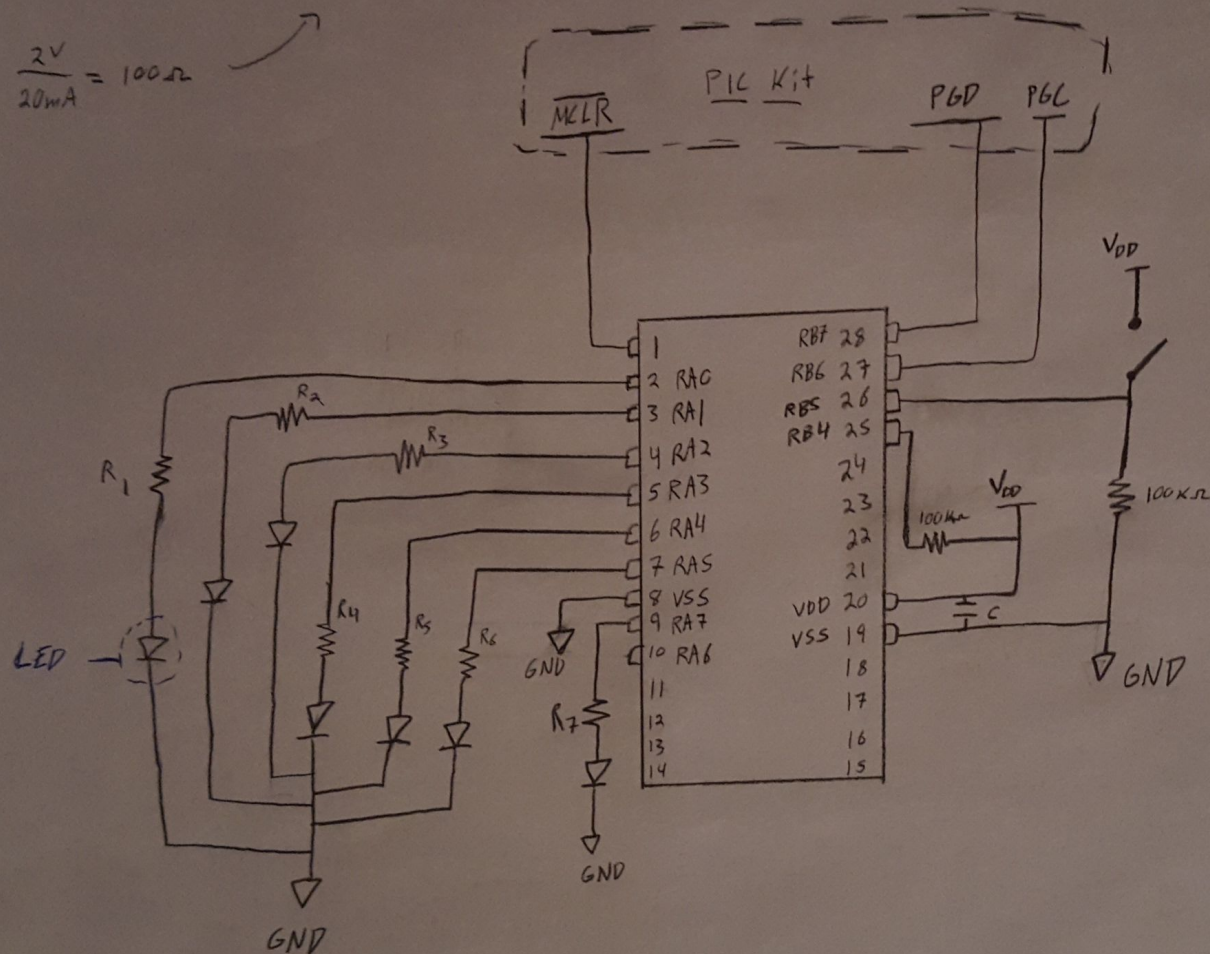 2V
20mA
= 100Ω
PIC Kit
MCLR
PGD
PGC
VDD
1
2 RA0
3 RA1
4 RA2
5 RA3
6 RA4
7 RA5
8 VSS
9 RA7
10 RA6
11
12
13
14
RB7 28
RB6 27
RB5 26
RB4 25
24
23
22
21
VDD 20
VSS 19
18
17
16
15
R1
R2
R3
R4
R5
R6
R7
LED
GND
GND
GND
VDD
100KΩ
C
100KΩ
GND